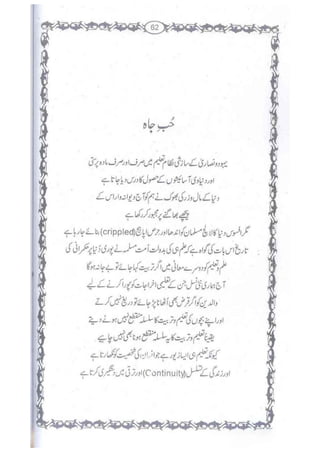 62
حُبِ جاہ
یہود و نصاریٰ کے سازشی نظام تعلیم میں صرف اور صرف مادہ پرستی
اور دنیاوی آسائیشوں کے حصول کا درس دیا جاتا ہے
دنیا کے مال و زر کی بھوک نے ہم کو آج دیوانہ وار اس کے
پیچھے بھاگنے پر مجبور کر رکھا ہے
مگر افسوس دنیا کا لالچ مسلمان کو اندھا اور حرص اپاہج (crippled) بنائے جا رہا ہے
تاریخ اس بات کی گواہ ہے کہ علم ہی کی بدولت اُمت مسلمہ نے پوری دُنیا پر حکمرانی کی
علم و تعلیم کو دوسرے معانی میں اگر تربیت کہا جائے تو بے جا نہ ہوگا
آج ہماری نئی نسل جن کے تعلیمی اخراجات کو پورا کرنے کے لیے
والدین کو اگر قرض بھی اُٹھانا پڑ جائے تو دریغ نہیں کرتے
اور اپنے بچوں کی تعلیم و تربیت کا سلسلہ منقطع نہیں ہونے دیتے
یقیناً تعلیم و تربیت کا یہ سلسلہ منقطع ہونا بھی نہیں چاہیے
کیونکہ تعلیم ہی ایسا زیور ہے جو انسان کی شخصیت کو نکھارتا ہے
اور زندگی کے تسلسل (Continuity) اور ترقی میں دستگیری کرتا ہے